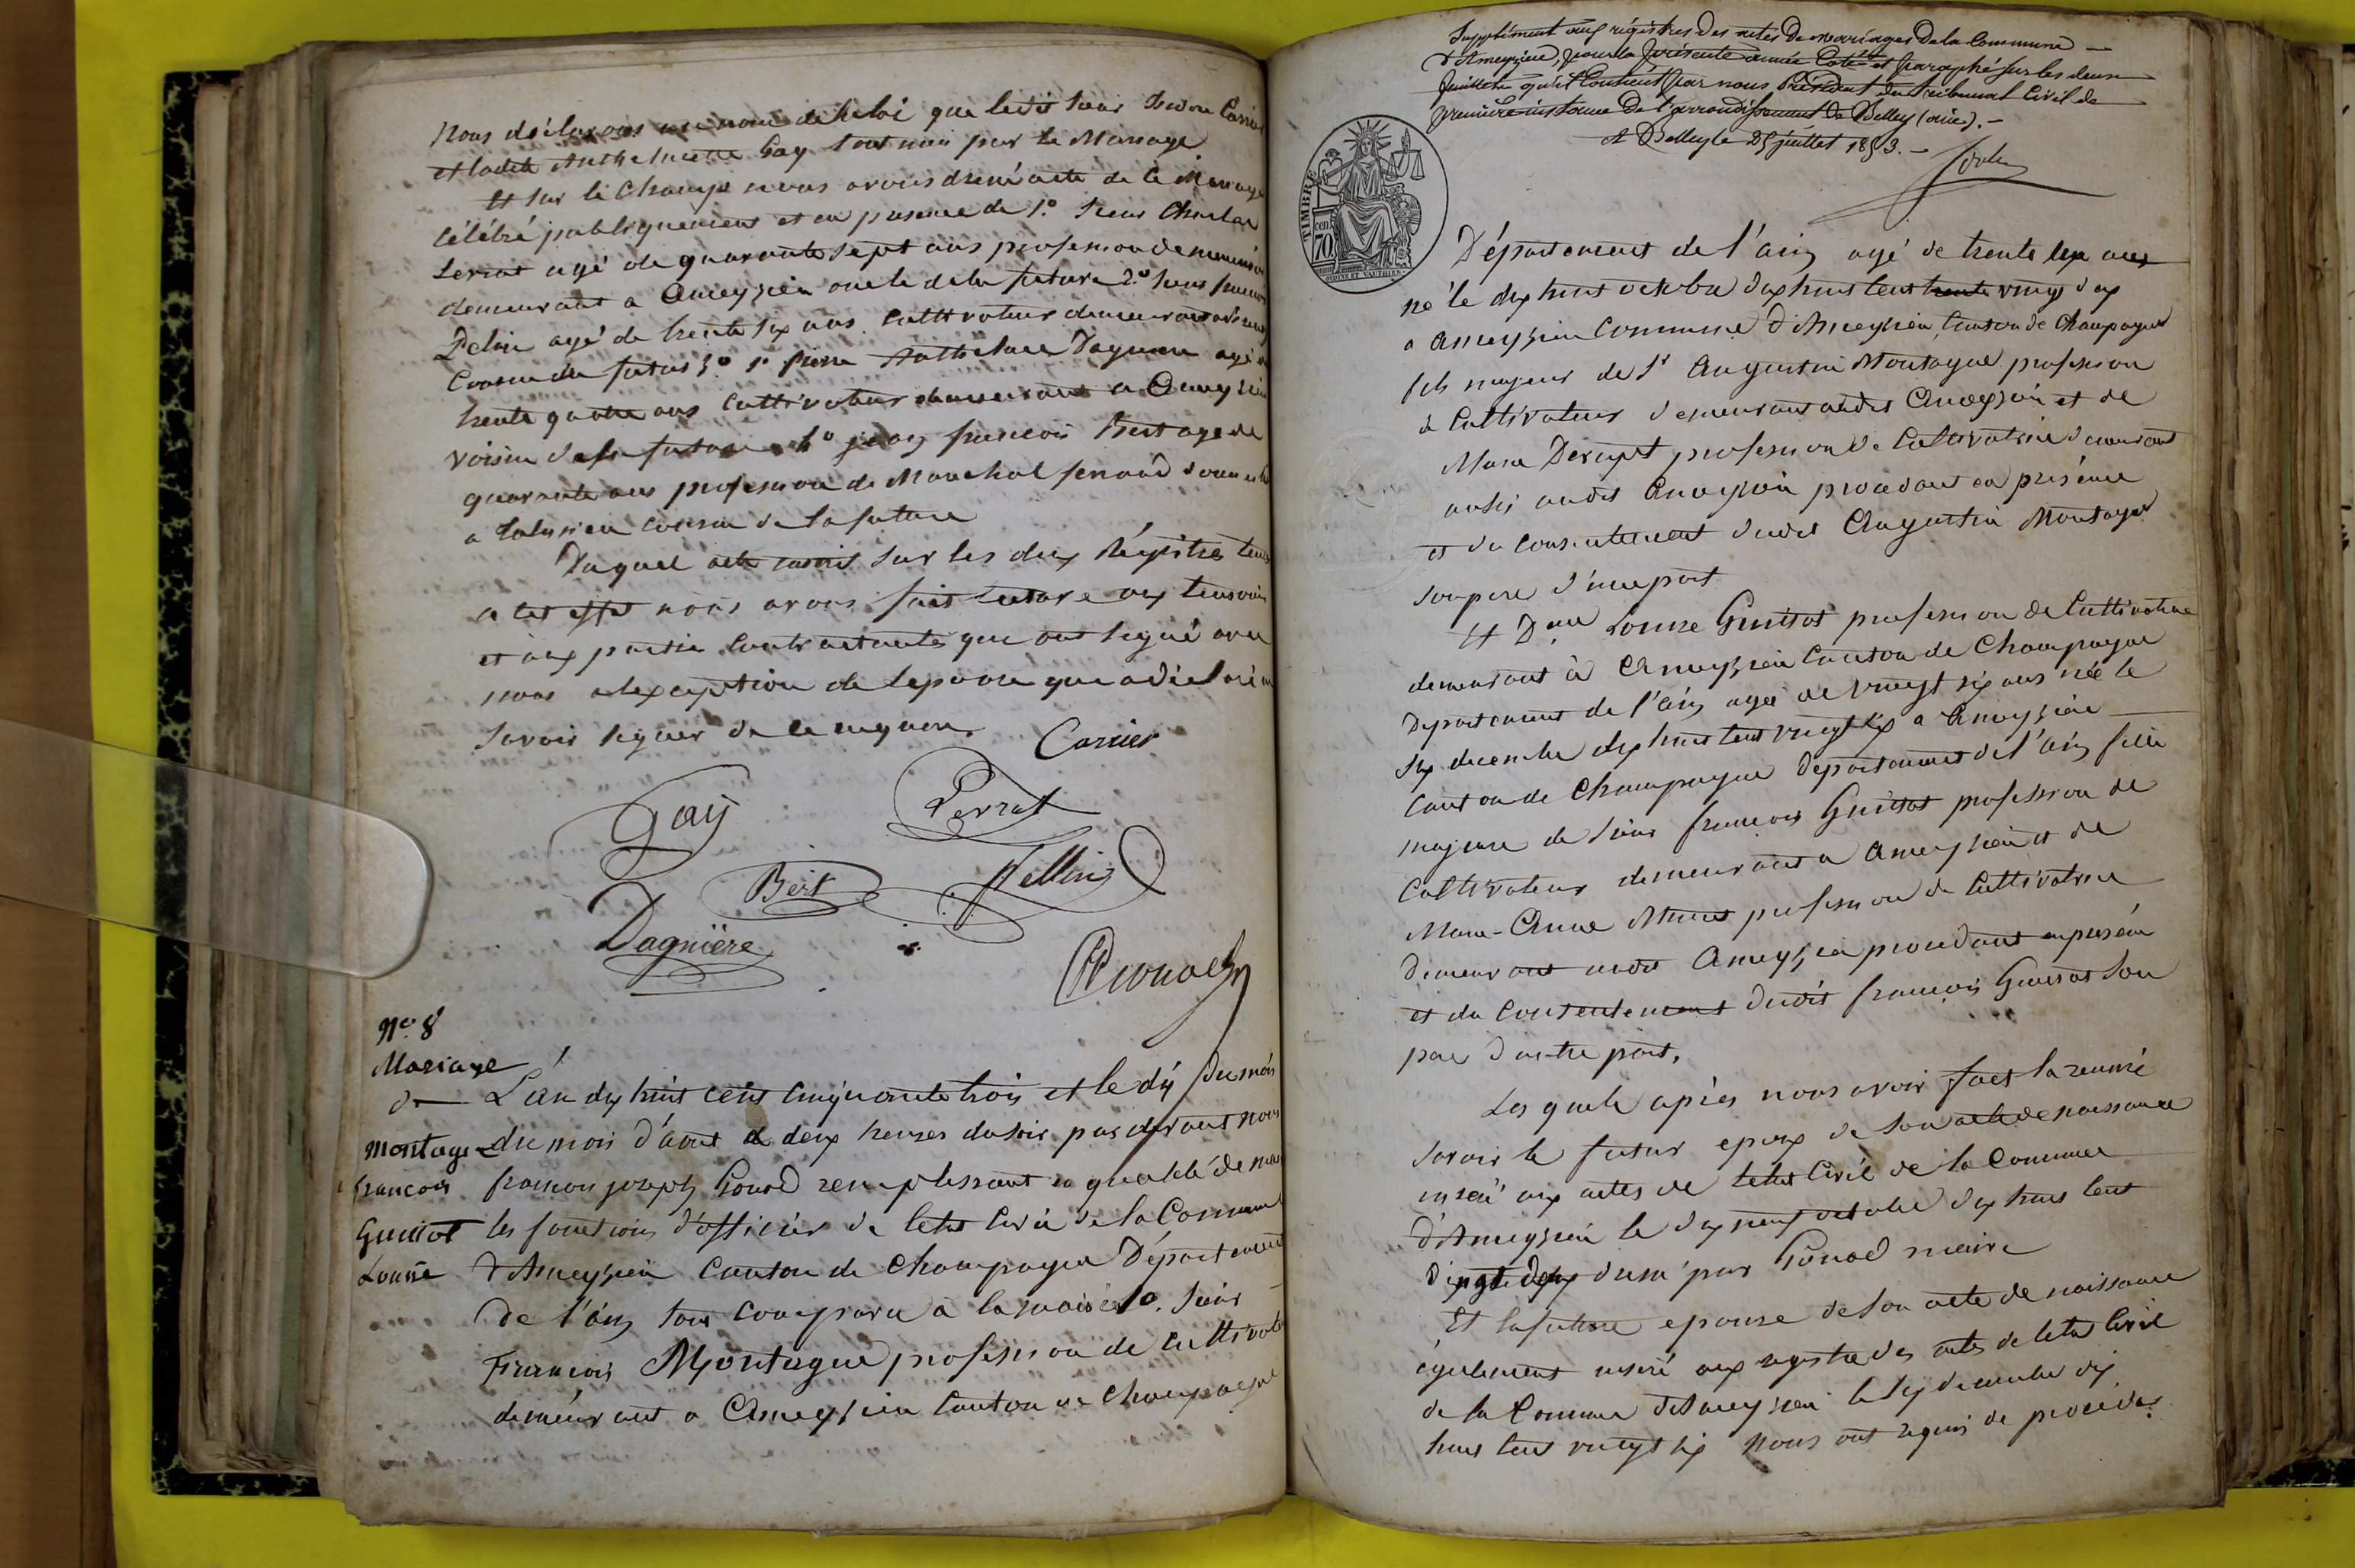 Nous déclarons au nom de la loi que ledit sieur
et ladite Anthelmette Gay sont unis par le Mariage
Et sur le Champ nous avons dressé acte de ce Mariage
célébré publiquement et en présence de 1.° Sieur Charles
agé de quarante sept ans profession de
demeurant a Ameyzieu oncle de la future 2.° Sieur
agé de trente six ans Cultivateur demeurant
Cousin du futur 3° Sr pierre Anthelme Dagniere agé de
trente quatre ans Cultivateur demeurant a Ameyzieu
voisin de la future 4° jean francois Bert age de
quarante ans profession de Marechal ferrand
a Talissieu Cousin de la future
Duquel acte inscrit sur les deux Régistres tenus
a cet effet nous avons fait lecture aux temoins
et aux parties Contractantes qui ont signé avec
nous a lexception de lepouse qui a déclaré ne
savoir signer de ce requise. Carrier
Gay Perrat
Bert Pellin
Dagnière
N.° 8
Mariage
de L'an dix huit cent cinquante trois et le dix du mois
Montagne du mois d'aout a deux heures du soir par devant nous
francois francois joseph Gonod remplissant en qualité de maire
Guittot les fonctions d'officier de letat Civil de la Commune
Louise d'Ameyzieu Canton de Champagne Département
de l'ain sont comparu a la mairie 1°. Sieur
François Montagne profession de Cultivateur
demeurant a Ameyzieu Canton de Champagne
Supplément aux régistres des actes de mariages de la Commune
d'Ameyzieu, pour la présente année Coté et paraphé sur les deux
feuillets qu'il Contient par nous, Président du tribunal Civil de
première instance de l'arrondissement de Belley (ain). –
A Belley le 25 juillet 1853. –
TIMBRE
70
Département de l'ain agé de trente ans
né le dix huit octobre dix huit cent vingt deux
a ameyzieu Commune d'Ameyzieu Canton de Champagne
fils majeur de Sr Augustin Montagne profession
de Cultivateur demeurant audit Ameyzieu et de
Marie profession de Cultivatrice demeurant
aussi audit Ameyzieu procédant en présence
et du Consentement dudit Augustin Montagne
son pere d'une part
Et D.lle Louise Guittot profession de Cultivatrice
demeurant à Ameyzieu Canton de Champagne
Departement de l'ain agée de vingt six ans née le
six decembre dix huit cent vingt six a Ameyzieu
Canton de Champagne departement de l'ain fille
majeure de Sieur francois Guittot profession de
Cultivateur demeurant a Ameyzieu et de
Marie-Anne profession de Cultivatrice
demeurant audit Ameyzieu procédant en présence
et du Consentement dudit francois Guittot son
pere d'autre part.
Les quels après nous avoir fait la remise
savoir le futur epoux de son acte de naissance
inséré aux actes de letat Civil de la Commune
d'Ameyzieu le dix neuf octobre dix huit cent
vingt deux dressé par Gonod maire
Et la future epouse de son acte de naissance
également inséré aux registre des actes de letat Civil
de la Commune d'Ameyzieu le six decembre dix
huit cent vingt six nous ont requis de procéder